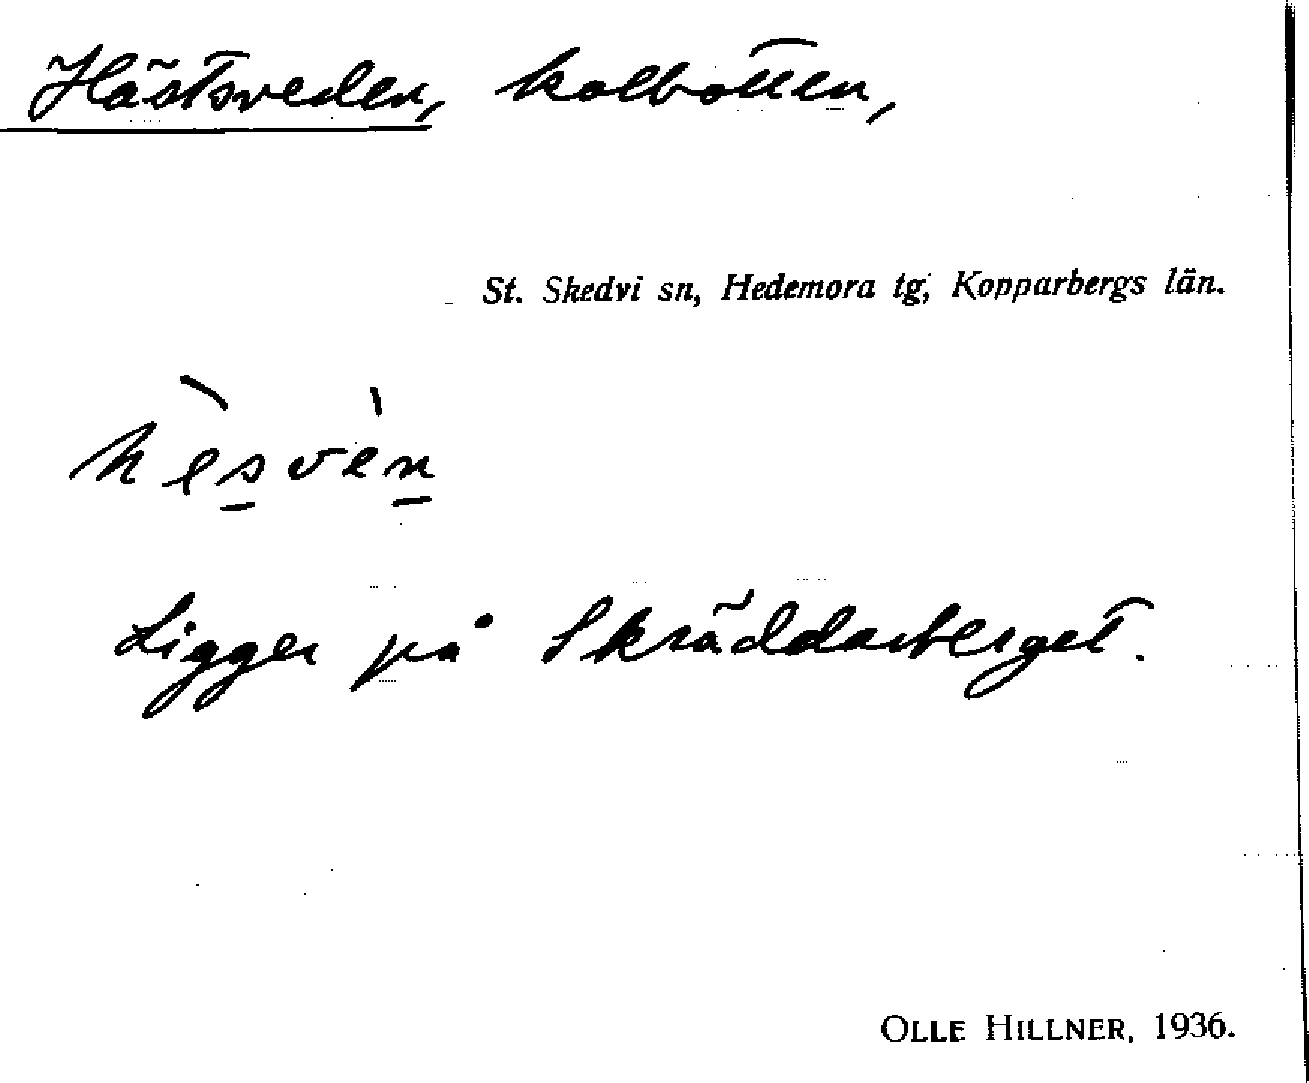 Hästsveden, kolbotten,
St. Skedvi sn, Hedemora tg, Kopparbergs län.
hèsvèn
Ligger på Skräddarberget.
OLLE HILLNER, 1936.